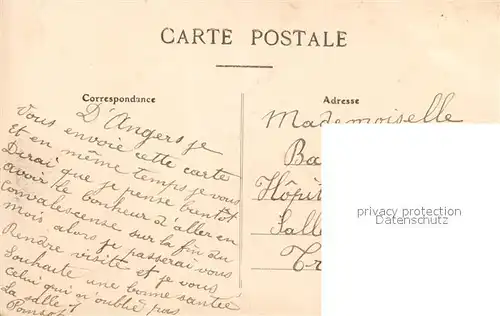 CARTE POSTALE
Correspondance
D'Angers je
vous envoie cette carte
et en même temps je vous
Dirai que je pense bientôt
avoir le bonheur d'aller en
Convalescense sur la fin du
mois alors je passerai vous
Rendre visite et je vous
Souhaite une bonne santée
celui qui n'oublie pas
La salle 7
Adresse
Mademoiselle
Ba
Hôpit
Salle
Tr
privacy protection
Datenschutz